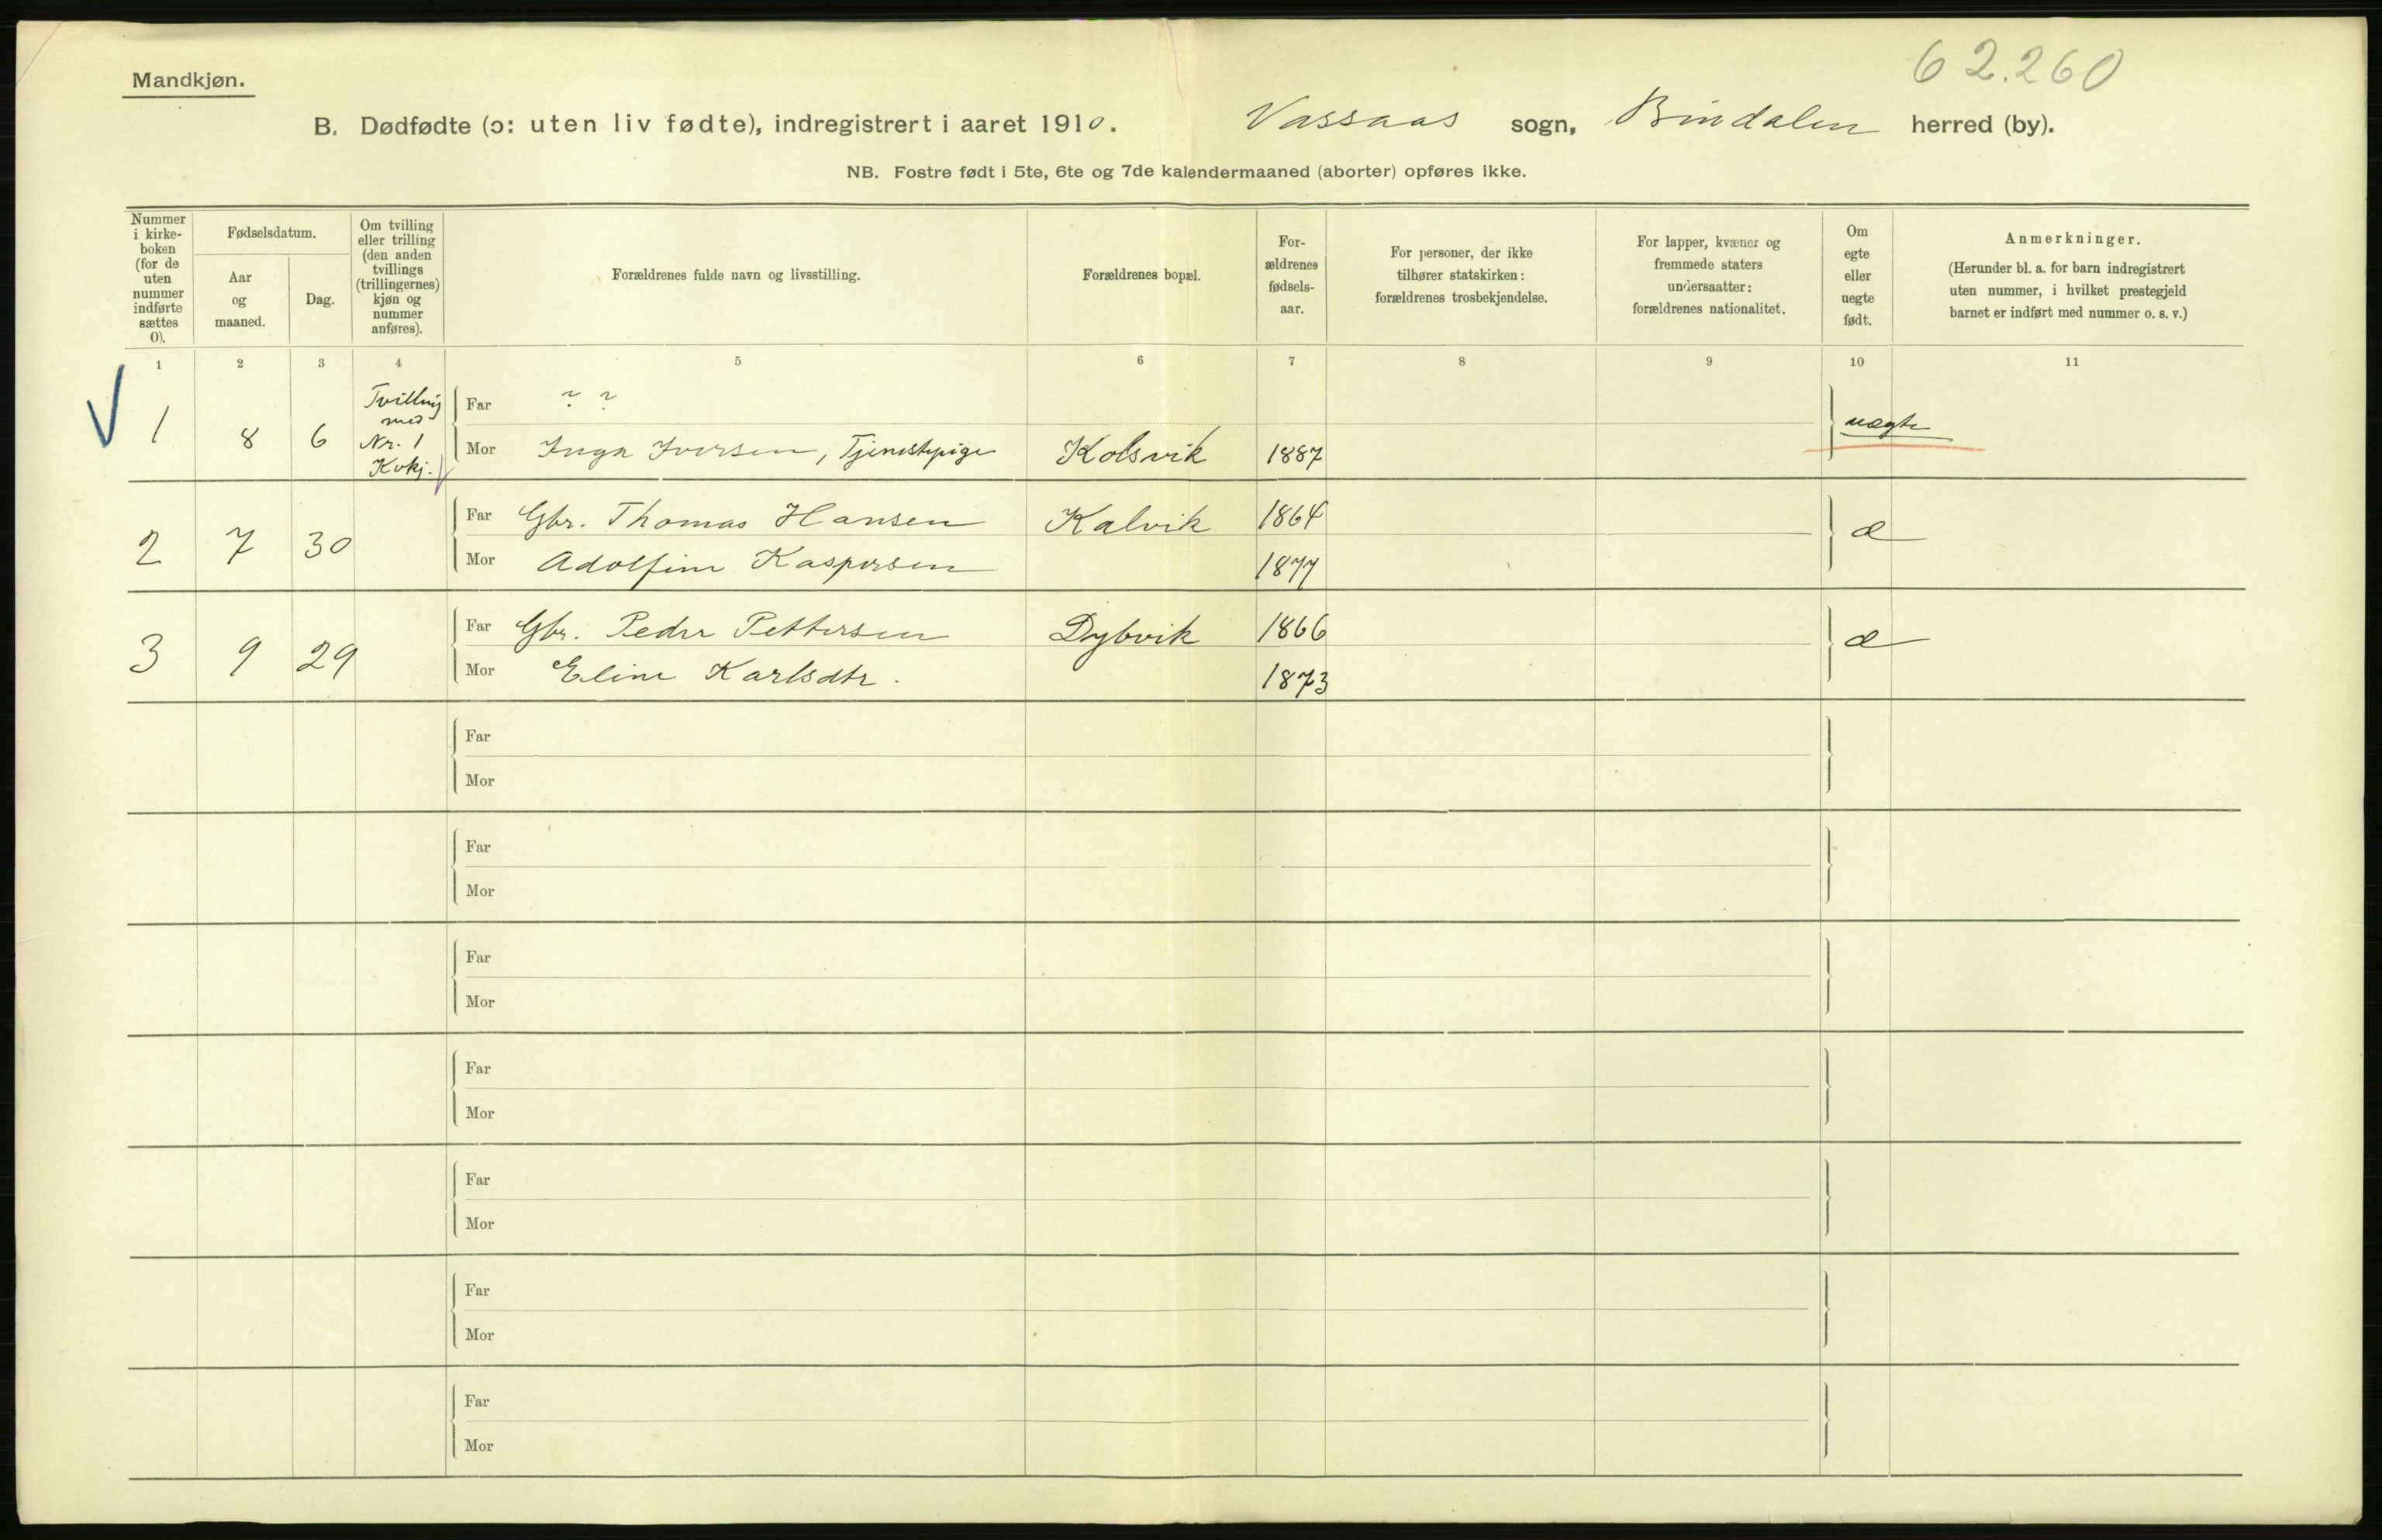 62.260
Mandkjøn.
B. Dødfødte (ɔ: uten liv fødte), indregistrert i aaret 1910. Vassaas sogn, Bindalen herred (by).
NB. Fostre født i 5te, 6te og 7de kalendermaaned (aborter) opføres ikke.
Nummer i kirke-boken (for de uten nummer indførte sættes 0).
Fødselsdatum.
Aar og maaned.
Dag.
Om tvilling eller trilling (den anden tvillings (trillingernes) kjøn og nummer anføres).
Forældrenes fulde navn og livsstilling.
Forældrenes bopæl.
For-ældrenes fødsels-aar.
For personer, der ikke tilhører statskirken: forældrenes trosbekjendelse.
For lapper, kvæner og fremmede staters undersaatter: forældrenes nationalitet.
Om egte eller uegte født.
Anmerkninger.
(Herunder bl. a. for barn indregistrert uten nummer, i hvilket prestegjeld barnet er indført med nummer o. s. v.)
1 2 3 4 5 6 7 8 9 10 11
1 8 6 Tvilling med Nr. 1 Kvkj.
Far ? ?
Mor Inga Iversen, Tjenestepige Kolsvik 1887 uægte
2 7 30
Far Gbr. Thomas Hansen Kalvik 1864 æ
Mor Adolfine Kaspersen 1877
3 9 29
Far Gbr. Peder Pettersen Dybvik 1866 æ
Mor Eline Karlsdtr. 1873
Far
Mor
Far
Mor
Far
Mor
Far
Mor
Far
Mor
Far
Mor
Far
Mor